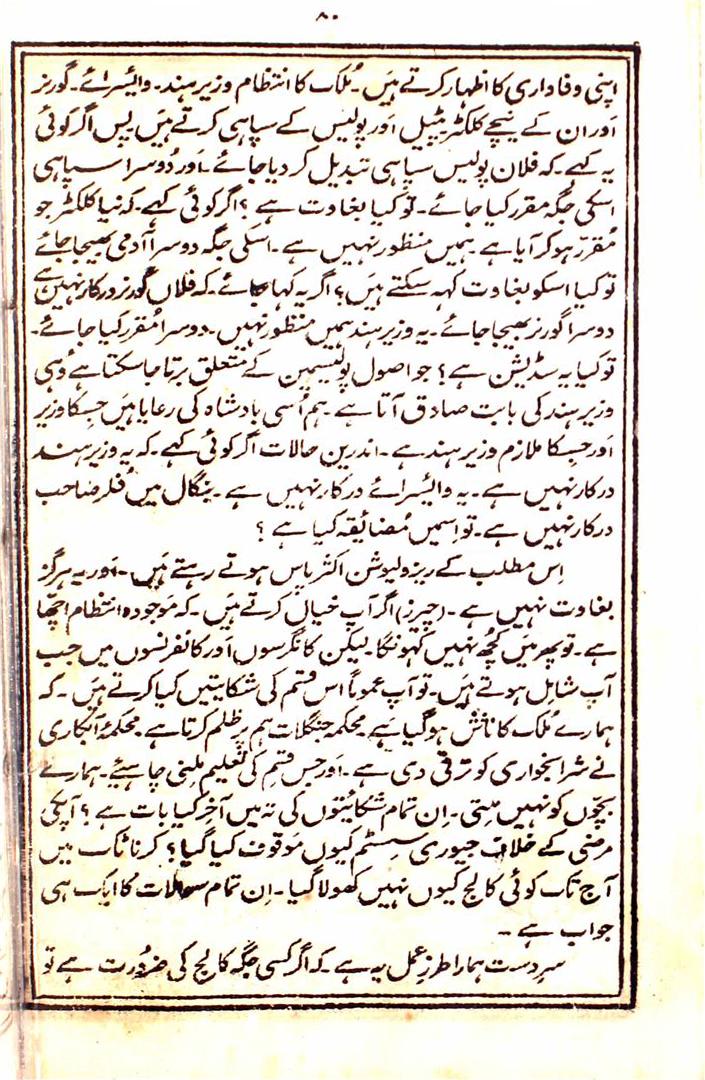 ۸۰
اپنی وفاداری کا اظہار کرتے ہیں۔ ملک کا انتظام وزیر ہند۔ وائیسرائے۔ گورنر
اور ان کے نیچے کلکٹر پٹیل اور پولیس کے سپاہی کرتے ہیں پس اگر کوئی
یہ کہے۔ کہ فلان پولیس سپاہی تبدیل کر دیا جائے۔ اور دُوسرا سپاہی
اسکی جگہ مقرر کیا جائے۔ تو کیا بغاوت ہے؟ اگر کوئی کہے۔ کہ نیا کلکٹر جو
مُقرر ہو کر آیا ہے۔ ہمیں منظور نہیں ہے۔ اسکی جگہ دوسرا آدمی بھیجا جائے
تو کیا اسکو بغاوت کہہ سکتے ہیں؟ اگر یہ کہا جائے۔ کہ فلاں گورنر درکار نہیں ہے
دوسرا گورنر بھیجا جائے۔ یہ وزیر ہند ہمیں منظور نہیں۔ دوسرا مُقرر کیا جائے۔
تو کیا یہ سڈیشن ہے؟ جو اصول پولیسمین کے متعلق برتا جا سکتا ہے وُہی
وزیر ہند کی بابت صادق آتا ہے۔ ہم اُسی بادشاہ کی رعایا ہیں جسکا وزیر
اور جسکا ملازم وزیر ہند ہے۔ اندریں حالات اگر کوئی کہے۔ کہ یہ وزیر ہند
درکار نہیں ہے۔ یہ وائیسرائے درکار نہیں ہے۔ بنگال میں فلر صاحب
درکار نہیں ہے۔ تو اسمیں مُضائیقہ کیا ہے؟
اِس مطلب کے ریزولیوشن اکثر پاس ہوتے رہتے ہیں۔ اور یہ ہرگز
بغاوت نہیں ہے۔ (چیرز) اگر آپ خیال کرتے ہیں۔ کہ موجودہ انتظام اچھا
ہے۔ تو پھر میں کچھ نہیں کہونگا۔ لیکن کانگرسوں اور کانفرنسوں میں جب
آپ شامل ہوتے ہیں۔ تو آپ عموماً اس قسم کی شکایتیں کیا کرتے ہیں۔ کہ
ہمارے ملک کا ناش ہو گیا ہے محکمہ جنگلات ہم پر ظلم کرتا ہے۔ محکمۂ آبکاری
نے شرابخواری کو ترقی دی ہے۔ اور جس قسم کی تعلیم ملنی چاہیئے۔ ہمارے
بچوں کو نہیں ملتی۔ اِن تمام شکائیتوں کی تہ میں آخر کیا بات ہے؟ آپکی
مرضی کے خلاف جیوری سسٹم کیوں موقوف کیا گیا؟ کرناٹک میں
آج تک کوئی کالج کیوں نہیں کھولا گیا۔ اِن تمام سوالات کا ایک ہی
جواب ہے۔
سرِ دست ہمارا طرزِ عمل یہ ہے۔ کہ اگر کسی جگہ کالج کی ضرورت ہے تو